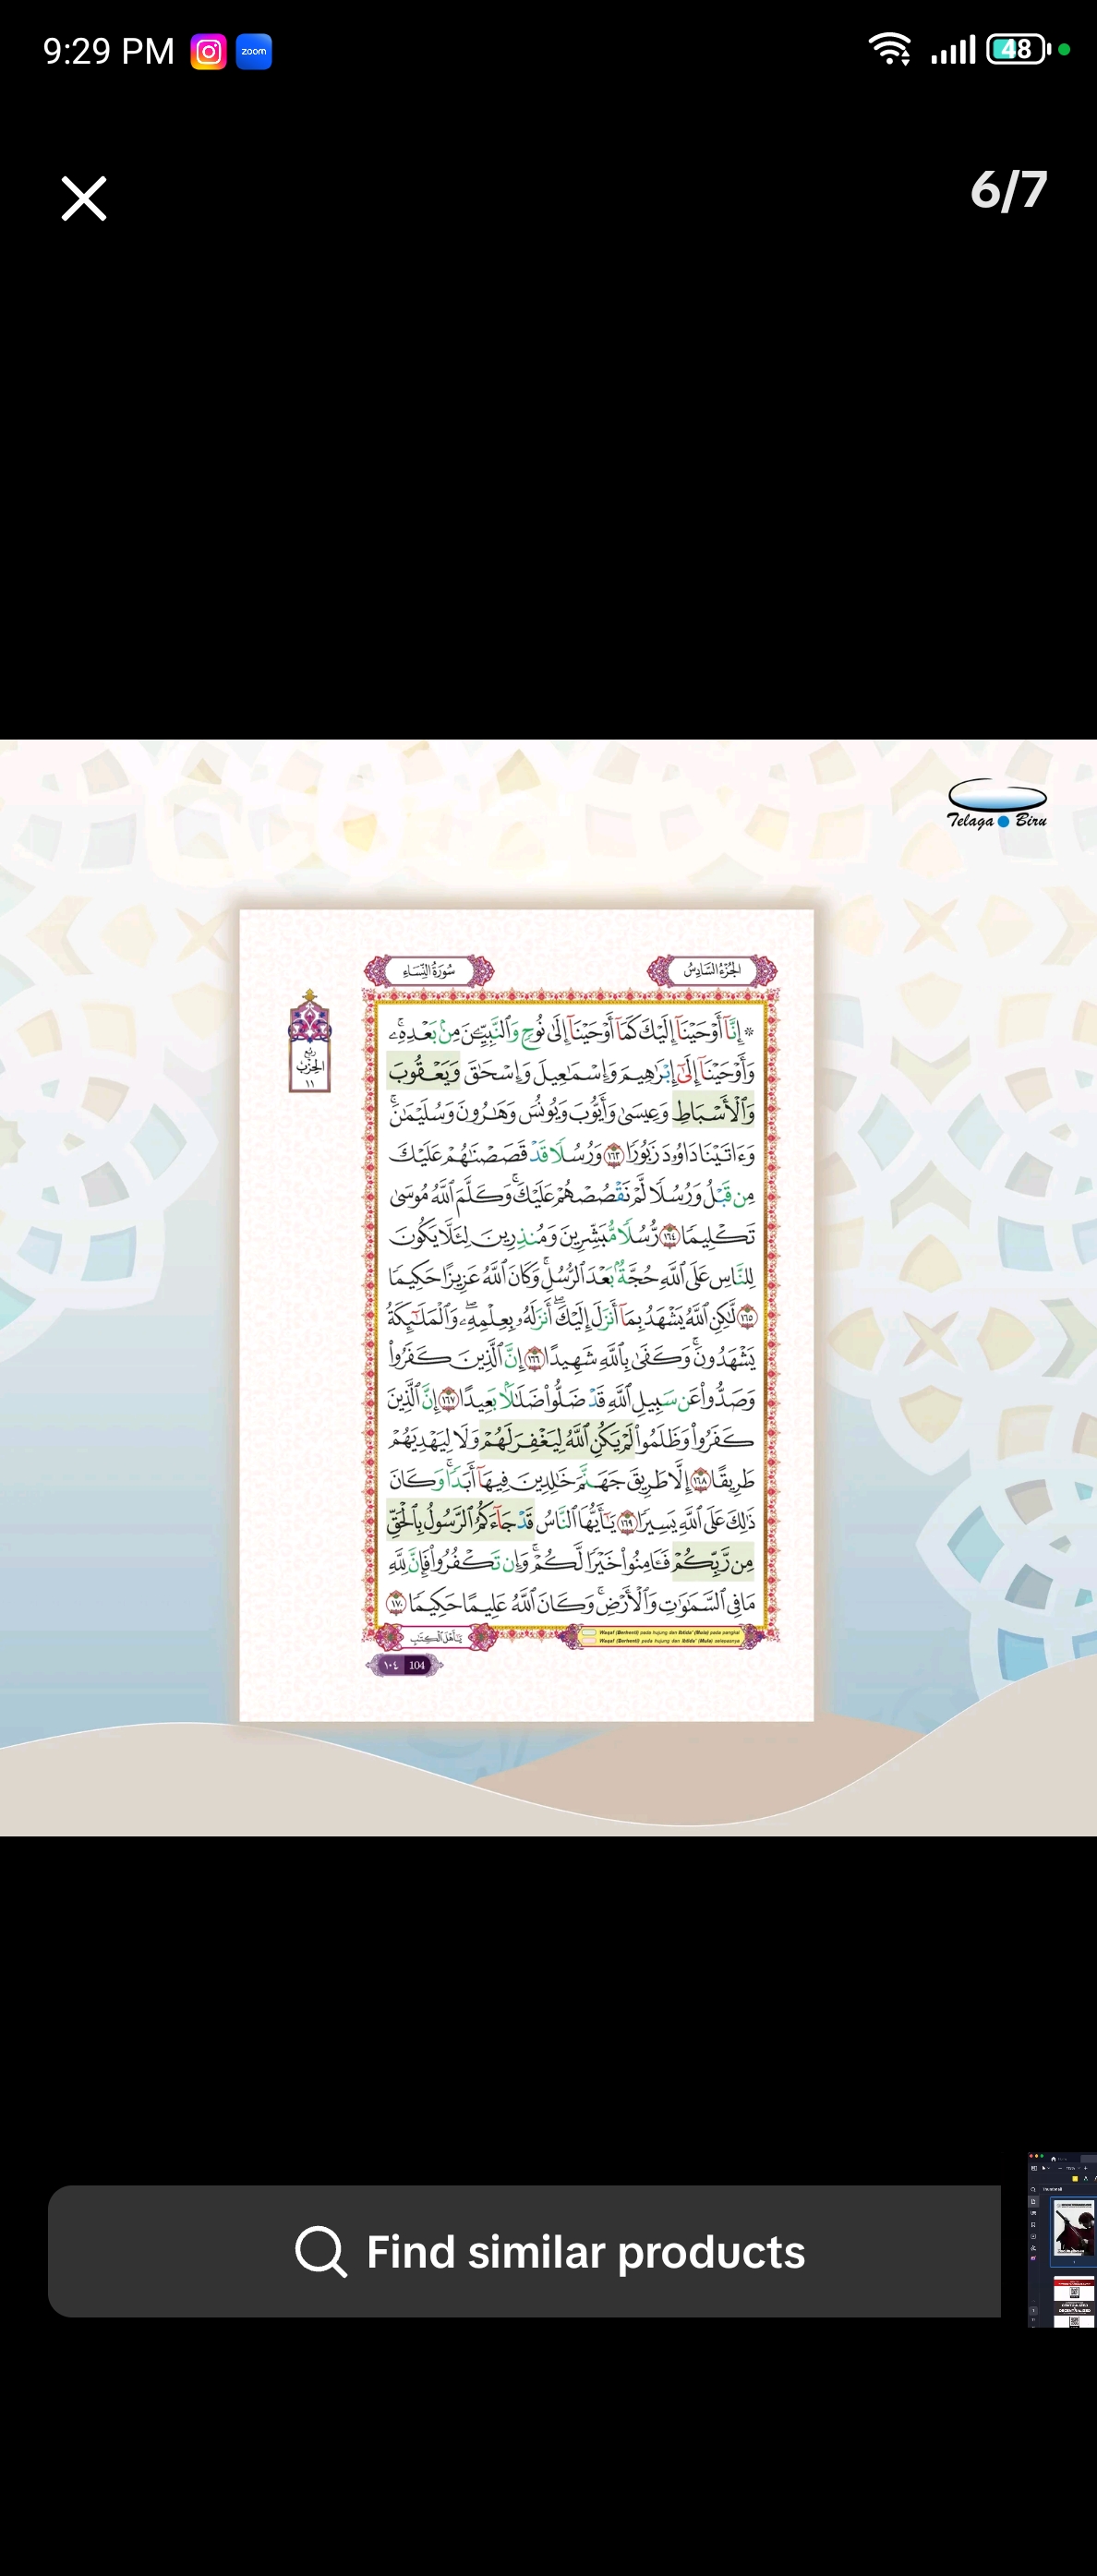 9:29 PM
zoom
48
6/7
Telaga Biru
سُورَةُ النِّسَاءِ
الجُزْءُ السَّادِسُ
رُبْع
الحِزْب
١١
* إِنَّآ أَوْحَيْنَآ إِلَيْكَ كَمَآ أَوْحَيْنَآ إِلَىٰ نُوحٍ وَٱلنَّبِيِّـۧنَ مِنۢ بَعْدِهِۦۚ
وَأَوْحَيْنَآ إِلَىٰٓ إِبْرَٰهِيمَ وَإِسْمَٰعِيلَ وَإِسْحَٰقَ وَيَعْقُوبَ
وَٱلْأَسْبَاطِ وَعِيسَىٰ وَأَيُّوبَ وَيُونُسَ وَهَٰرُونَ وَسُلَيْمَٰنَۚ
وَءَاتَيْنَا دَاوُۥدَ زَبُورًا ١٦٣ وَرُسُلًا قَدْ قَصَصْنَٰهُمْ عَلَيْكَ
مِن قَبْلُ وَرُسُلًا لَّمْ نَقْصُصْهُمْ عَلَيْكَۚ وَكَلَّمَ ٱللَّهُ مُوسَىٰ
تَكْلِيمًا ١٦٤ رُّسُلًا مُّبَشِّرِينَ وَمُنذِرِينَ لِئَلَّا يَكُونَ
لِلنَّاسِ عَلَى ٱللَّهِ حُجَّةٌۢ بَعْدَ ٱلرُّسُلِۚ وَكَانَ ٱللَّهُ عَزِيزًا حَكِيمًا
١٦٥ لَّٰكِنِ ٱللَّهُ يَشْهَدُ بِمَآ أَنزَلَ إِلَيْكَۖ أَنزَلَهُۥ بِعِلْمِهِۦۖ وَٱلْمَلَٰٓئِكَةُ
يَشْهَدُونَۚ وَكَفَىٰ بِٱللَّهِ شَهِيدًا ١٦٦ إِنَّ ٱلَّذِينَ كَفَرُوا۟
وَصَدُّوا۟ عَن سَبِيلِ ٱللَّهِ قَدْ ضَلُّوا۟ ضَلَٰلًۢا بَعِيدًا ١٦٧ إِنَّ ٱلَّذِينَ
كَفَرُوا۟ وَظَلَمُوا۟ لَمْ يَكُنِ ٱللَّهُ لِيَغْفِرَ لَهُمْ وَلَا لِيَهْدِيَهُمْ
طَرِيقًا ١٦٨ إِلَّا طَرِيقَ جَهَنَّمَ خَٰلِدِينَ فِيهَآ أَبَدًاۚ وَكَانَ
ذَٰلِكَ عَلَى ٱللَّهِ يَسِيرًا ١٦٩ يَٰٓأَيُّهَا ٱلنَّاسُ قَدْ جَآءَكُمُ ٱلرَّسُولُ بِٱلْحَقِّ
مِن رَّبِّكُمْ فَـَٔامِنُوا۟ خَيْرًا لَّكُمْۚ وَإِن تَكْفُرُوا۟ فَإِنَّ لِلَّهِ
مَا فِى ٱلسَّمَٰوَٰتِ وَٱلْأَرْضِۚ وَكَانَ ٱللَّهُ عَلِيمًا حَكِيمًا ١٧٠
يَٰٓأَهْلَ ٱلْكِتَٰبِ
Waqaf (Berhenti) pada hujung dan Ibtida' (Mula) pada pangkal
Waqaf (Berhenti) pada hujung dan Ibtida' (Mula) selepasnya
١٠٤ 104
Find similar products